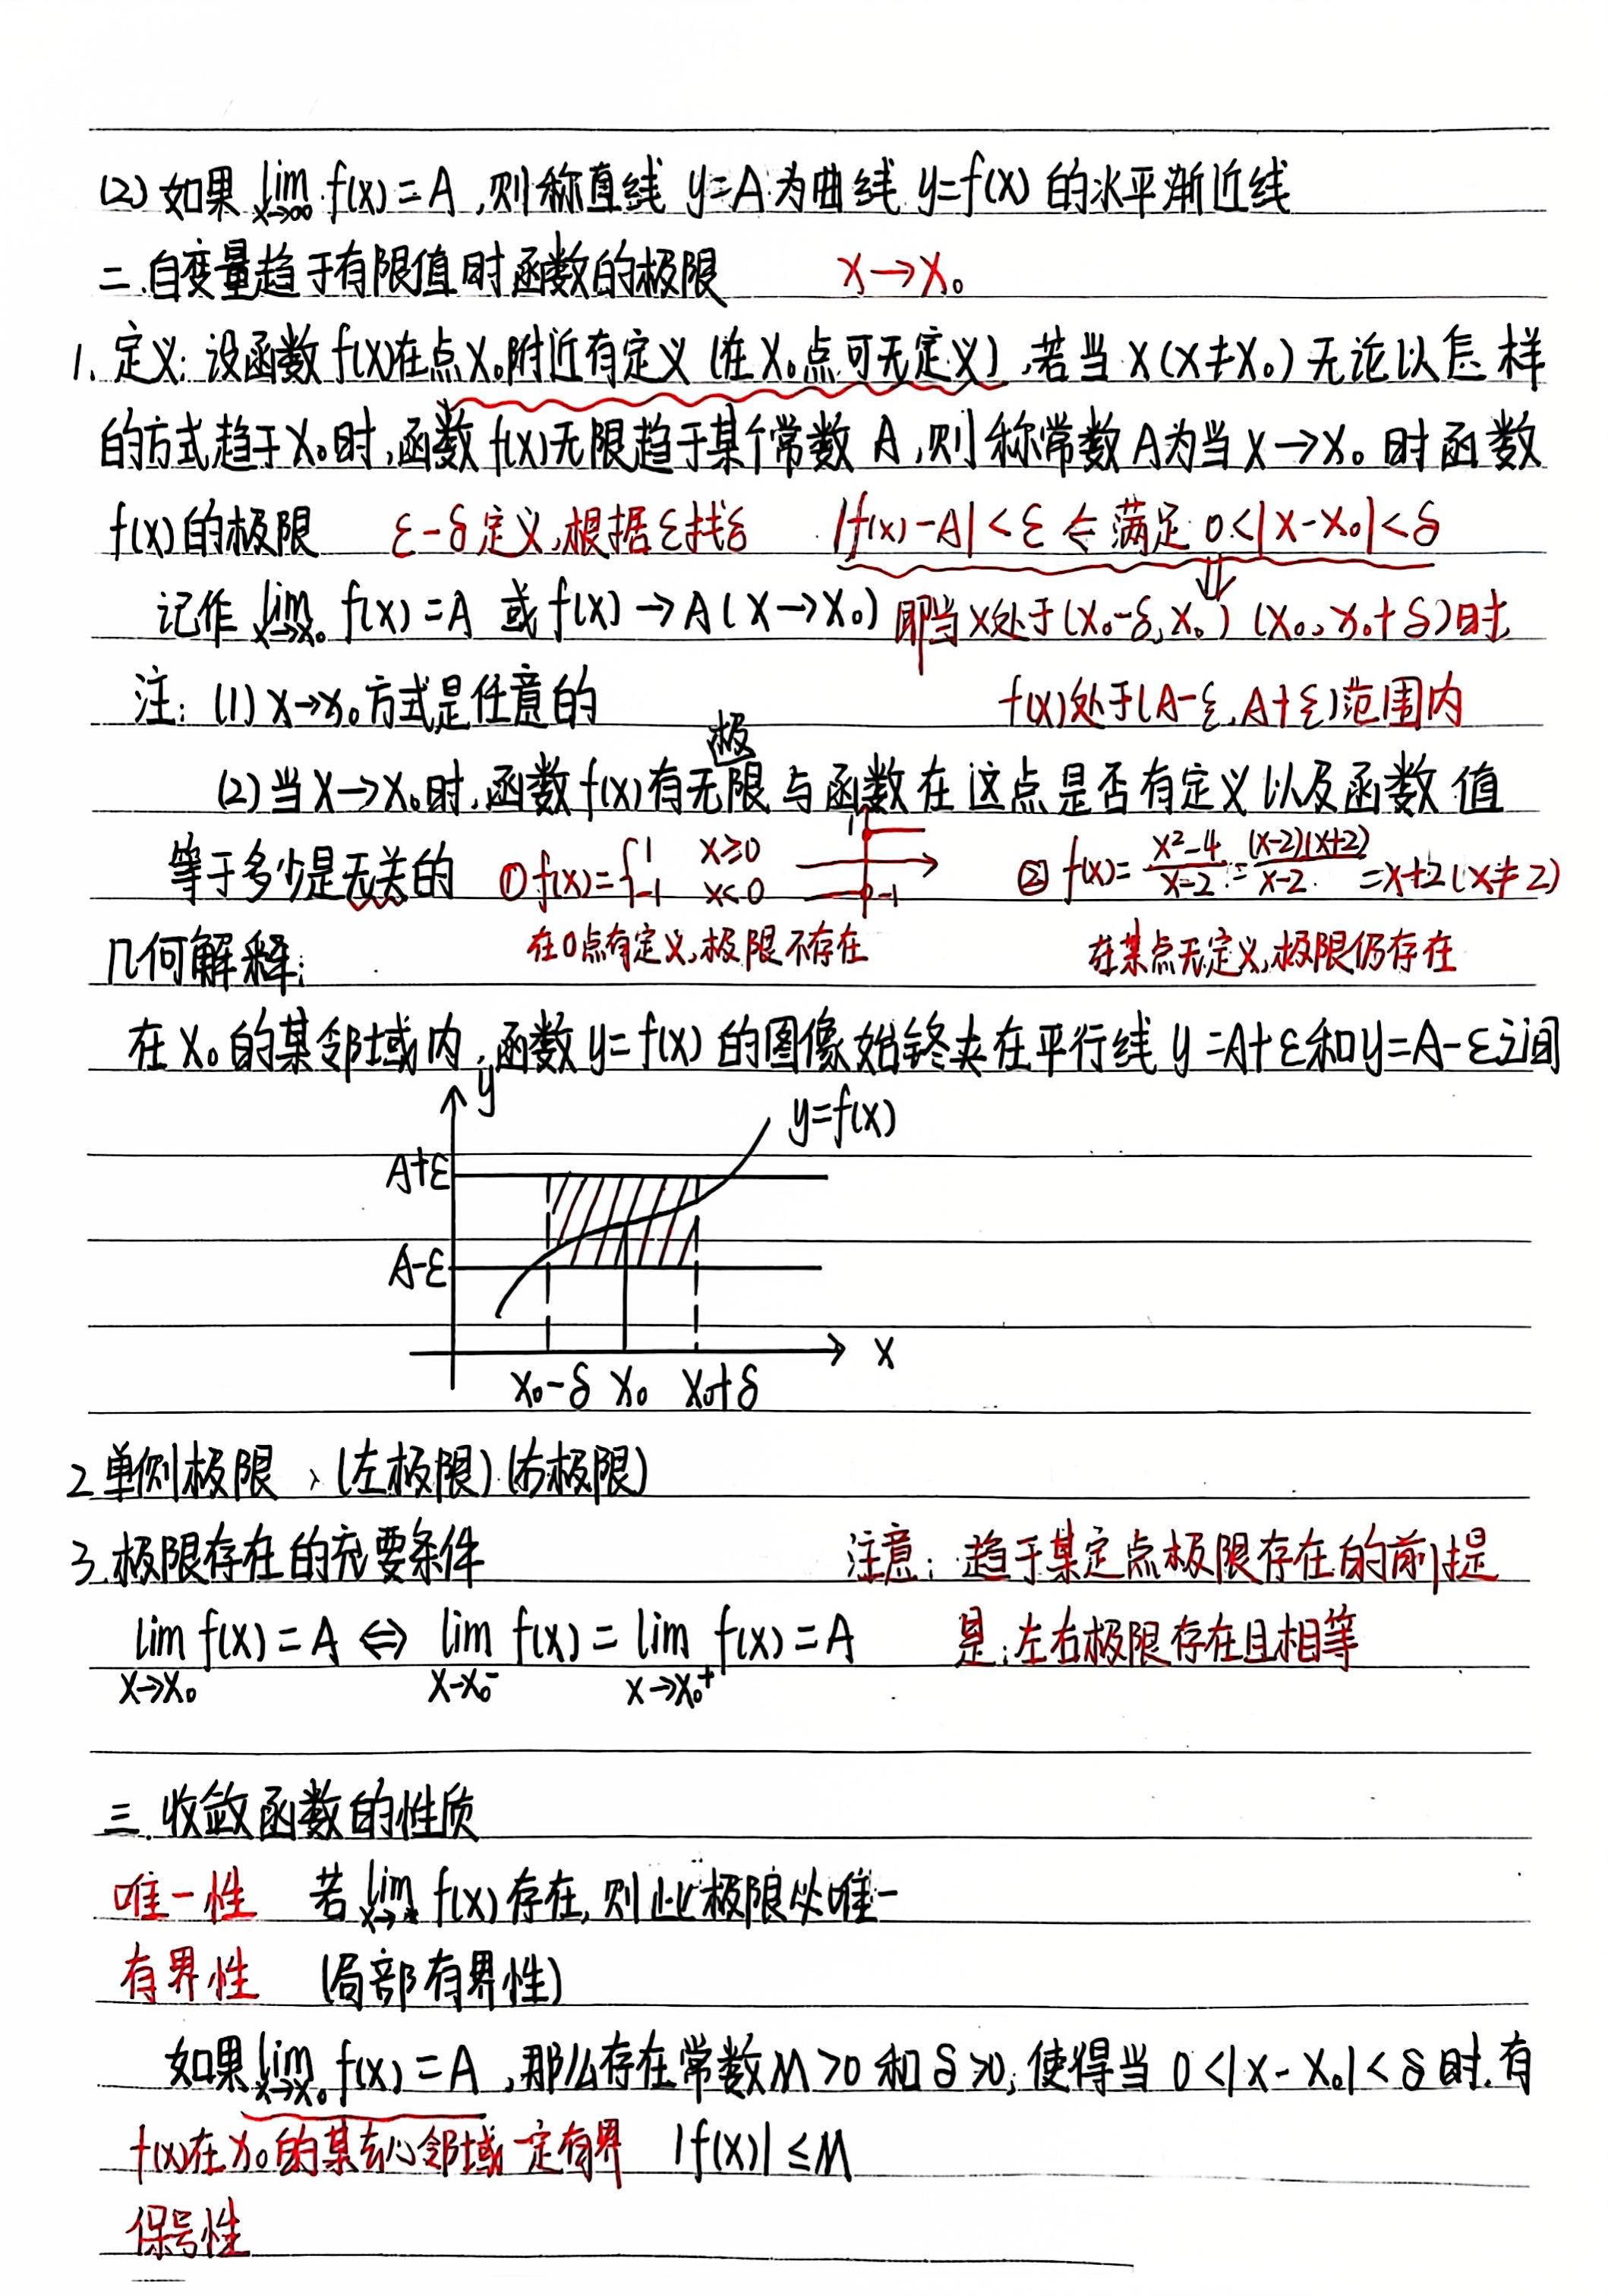 (2) 如果 lim f(x)=A ,则称直线 y=A 为曲线 y=f(x) 的水平渐近线
x→∞
二.自变量趋于有限值时函数的极限 x→x₀
1. 定义: 设函数 f(x)在点x₀附近有定义 (在x₀点可无定义) ,若当 x(x≠x₀) 无论以怎样
的方式趋于x₀时,函数 f(x)无限趋于某个常数 A ,则称常数A为当 x→x₀ 时函数
f(x)的极限 ε-δ定义,根据ε找δ |f(x)-A|<ε ⇐ 满足 0<|x-x₀|<δ
⇓
记作 lim f(x)=A 或 f(x)→A(x→x₀) 即当x处于(x₀-δ,x₀) (x₀,x₀+δ)时,
x→x₀
注: (1) x→x₀方式是任意的 f(x)处于(A-ε,A+ε)范围内
极
(2)当x→x₀时,函数f(x)有无限与函数在这点是否有定义以及函数值
等于多少是无关的 ①f(x)={1 x≥0 -1 x<0 1 -1 ② f(x)=(x²-4)/(x-2)=(x-2)(x+2)/(x-2)=x+2(x≠2)
几何解释: 在0点有定义,极限不存在 在某点无定义,极限仍存在
在x₀的某邻域内,函数y=f(x)的图像始终夹在平行线 y=A+ε和y=A-ε之间
y
y=f(x)
A+ε
A-ε
x
x₀-δ x₀ x₀+δ
2.单侧极限 、(左极限)(右极限)
3.极限存在的充要条件 注意: 趋于某定点极限存在的前提
lim f(x)=A ⇔ lim f(x)=lim f(x)=A 是:左右极限存在且相等
x→x₀ x→x₀⁻ x→x₀⁺
三.收敛函数的性质
唯一性 若 lim f(x)存在,则此极限必唯一
有界性 (局部有界性)
如果 lim f(x)=A ,那么存在常数M>0和δ>0,使得当 0<|x-x₀|<δ时.有
x→x₀
f(x)在x₀的某去心邻域一定有界 |f(x)|≤M
保号性